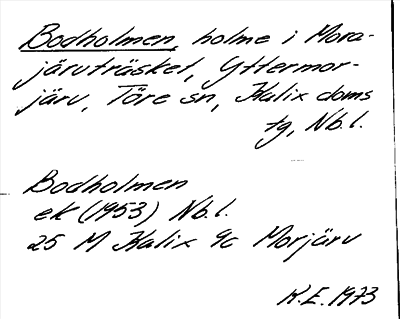 Bodholmen, holme i Mora-
järvträsket, Yttermor-
järv, Töre sn, Kalix doms
tg, Nb.l.
Bodholmen
ek (1953) Nb.l.
25 M Kalix 9c Morjärv
K.E. 1973